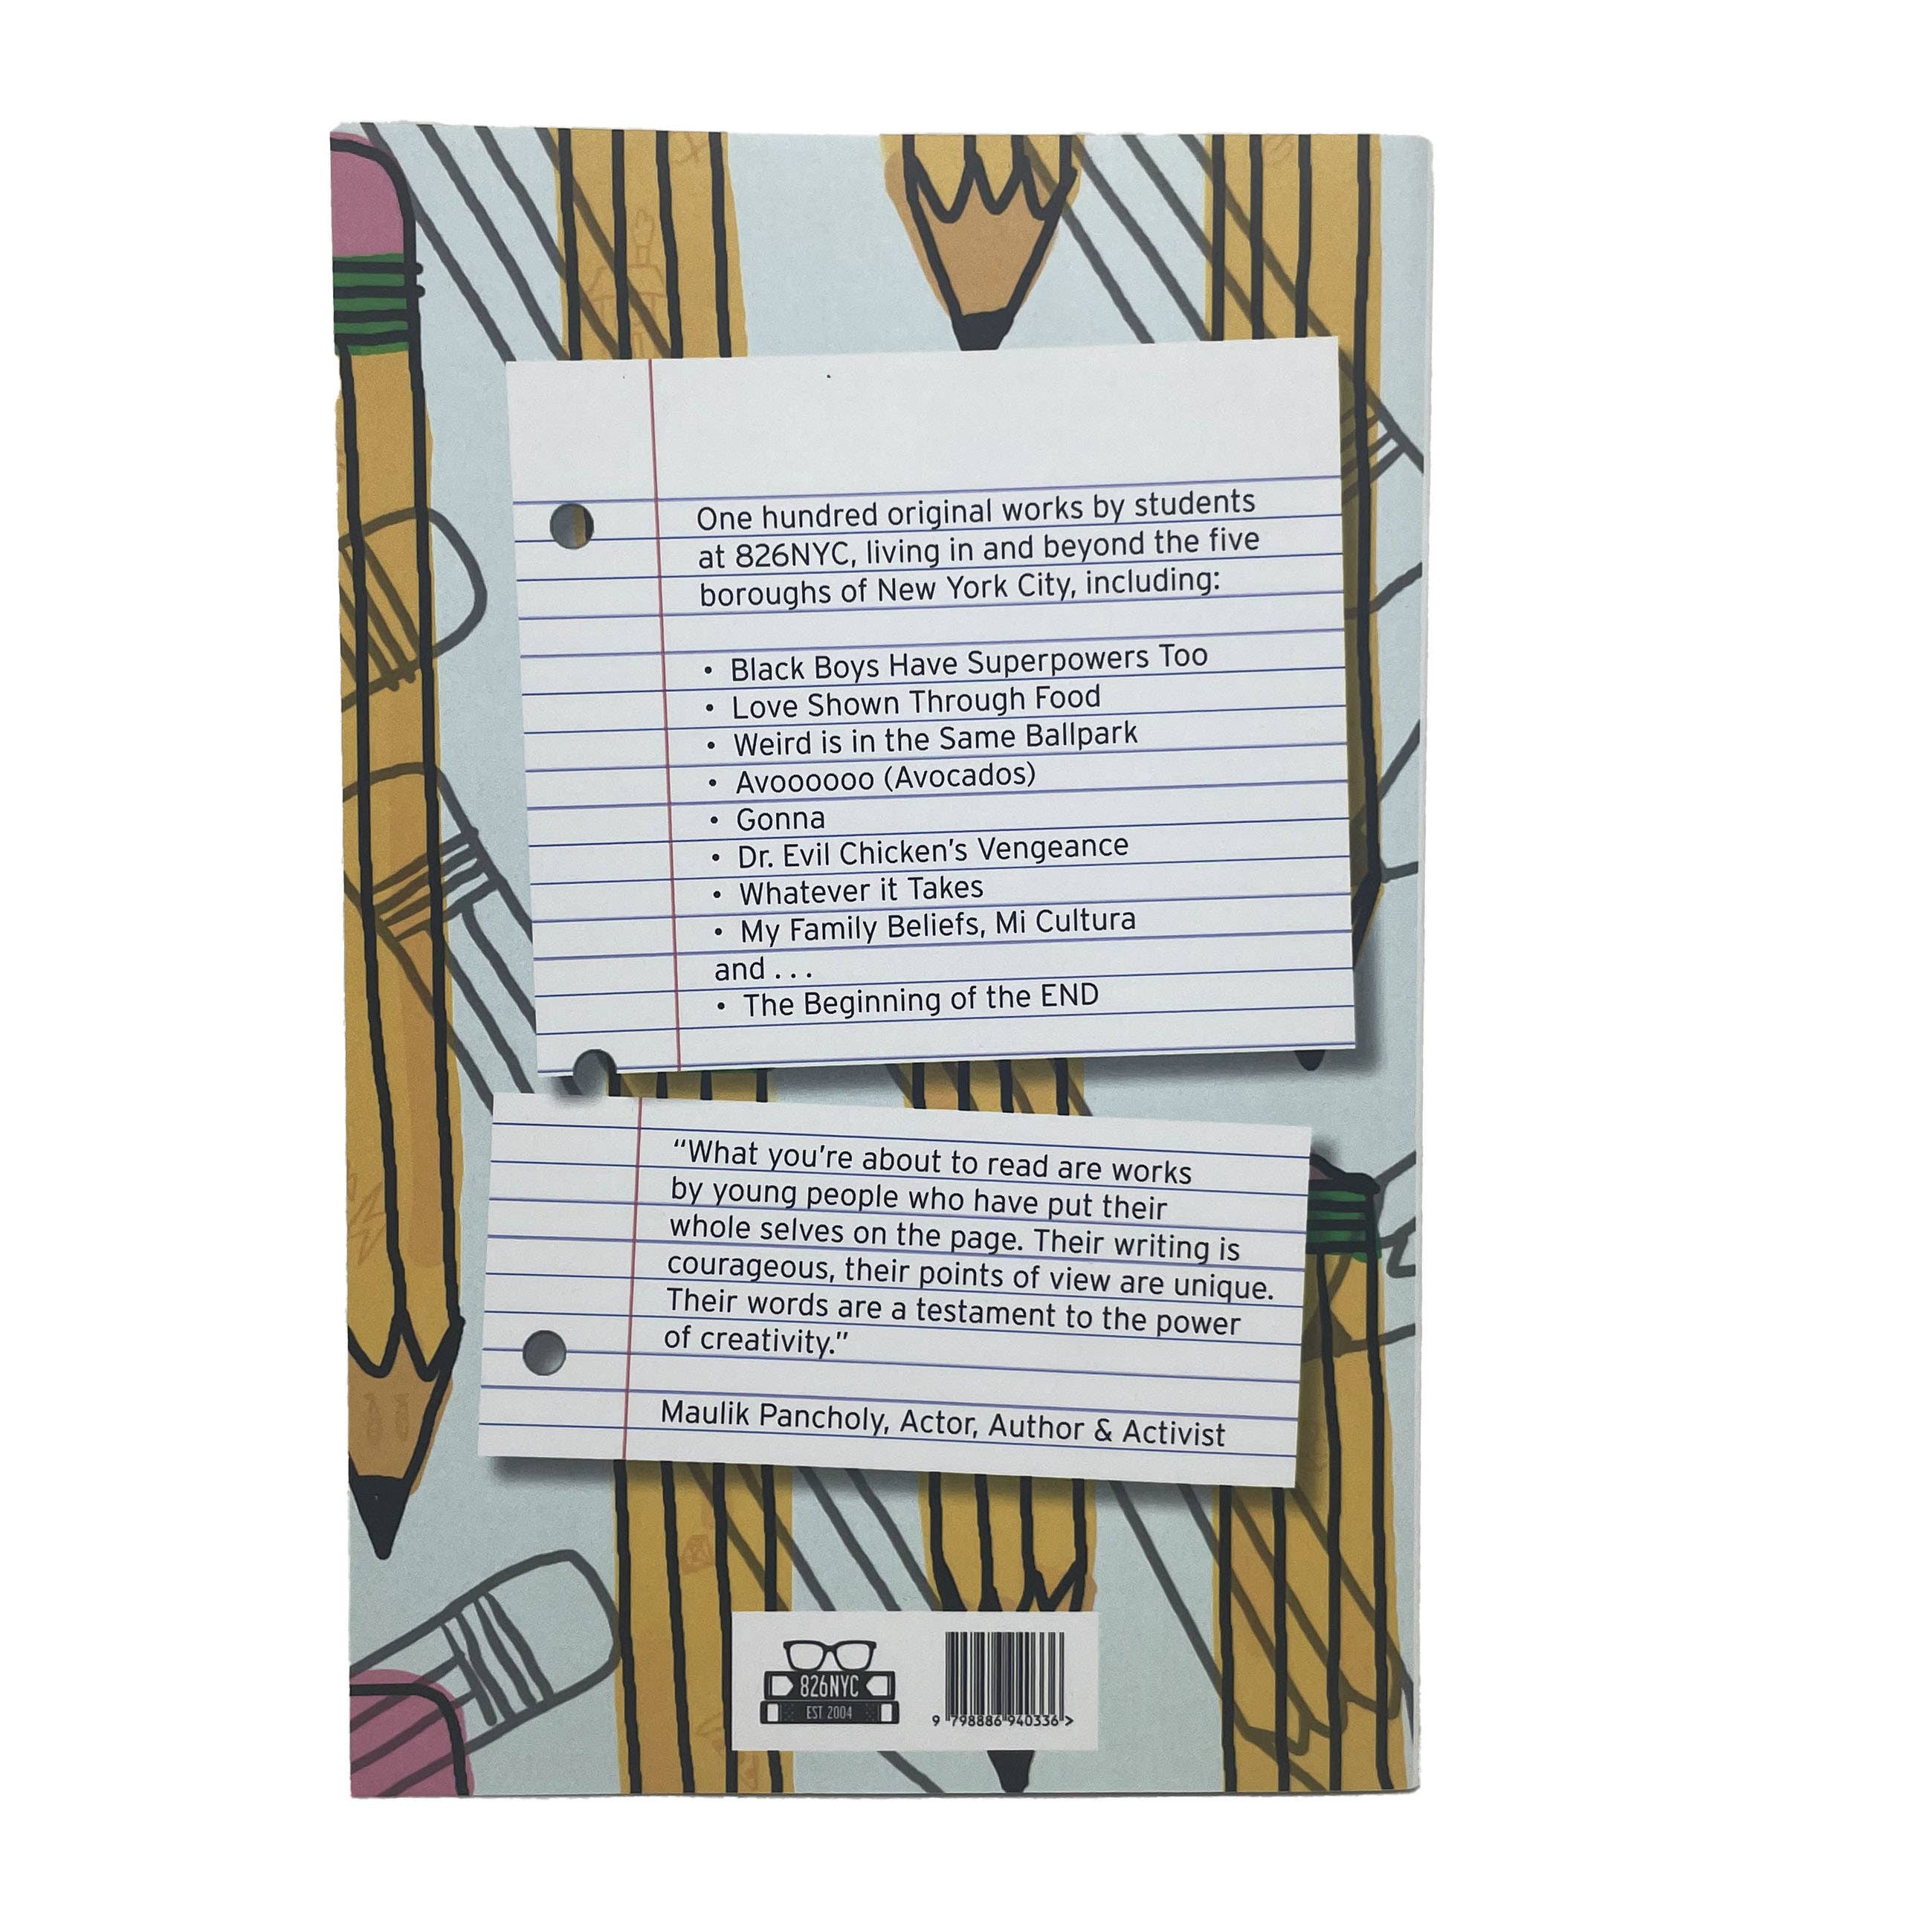 One hundred original works by students
at 826NYC, living in and beyond the five
boroughs of New York City, including:
• Black Boys Have Superpowers Too
• Love Shown Through Food
• Weird is in the Same Ballpark
• Avoooooo (Avocados)
• Gonna
• Dr. Evil Chicken's Vengeance
• Whatever it Takes
• My Family Beliefs, Mi Cultura
and . . .
• The Beginning of the END
“What you're about to read are works
by young people who have put their
whole selves on the page. Their writing is
courageous, their points of view are unique.
Their words are a testament to the power
of creativity.”
Maulik Pancholy, Actor, Author & Activist
826NYC
EST 2004
9 798886 940336 >